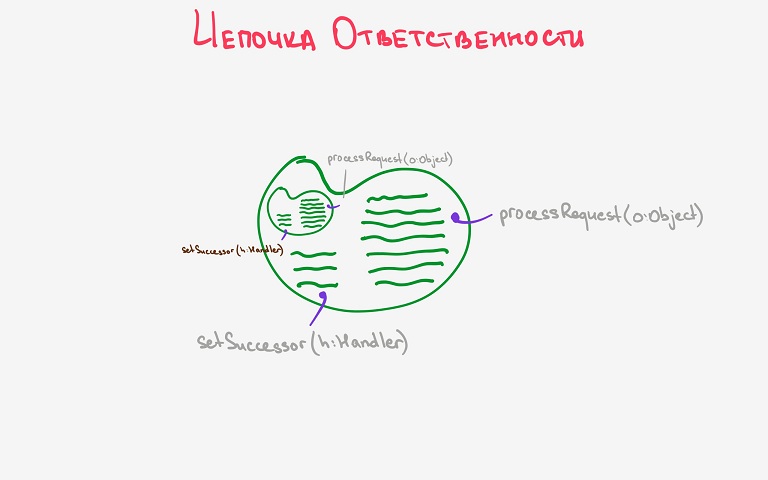 Цепочка Ответственности
processRequest(o:Object)
processRequest(o:Object)
setSuccessor(h:Handler)
setSuccessor(h:Handler)